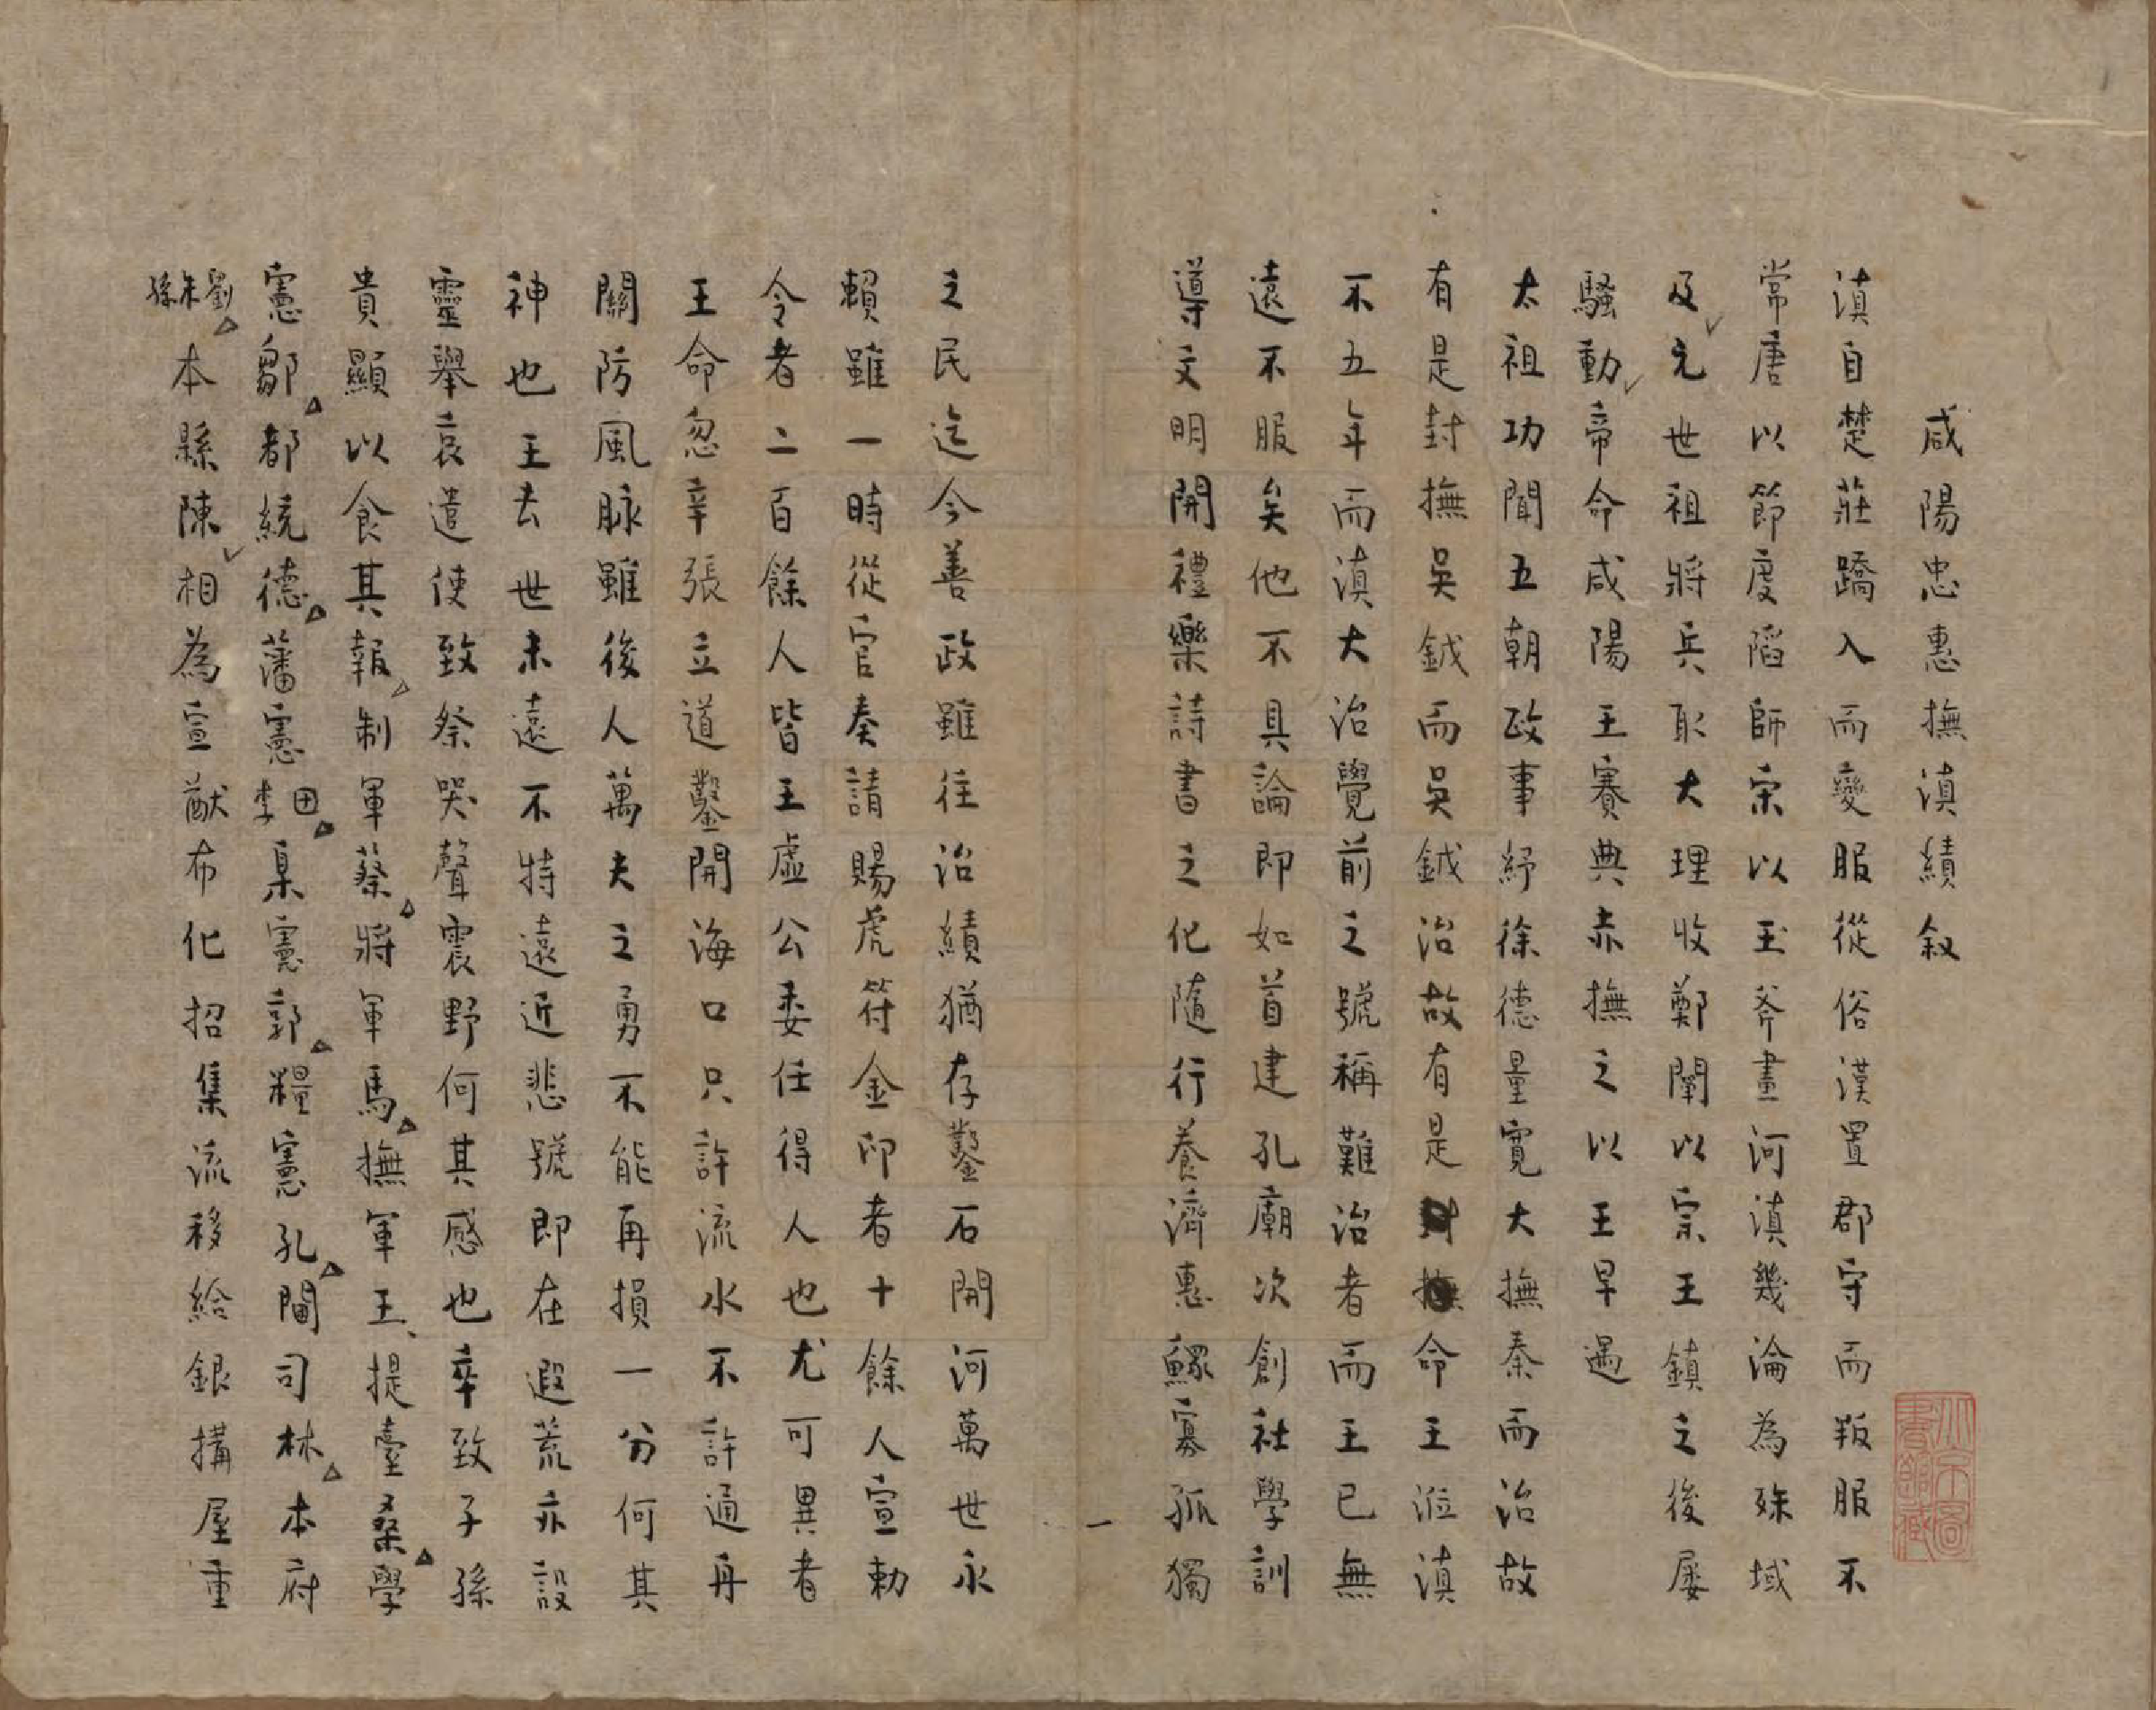 咸陽忠惠撫滇績叙
滇自楚莊蹻入而變服從俗漢置郡守而叛服不
常唐以節度蹈師宗以玉斧畫河滇幾淪為殊域
及元世祖將兵取大理收鄭闡以宗王鎮之後屡
騷動帝命咸陽王賽典赤撫之以王早遇
太祖功聞五朝政事紓徐德量寬大撫秦而治故
有是封撫吳鉞而吳鉞治故有是命王涖滇
不五年而滇大治覺前之號稱難治者而王已無
遠不服矣他不具論即如首建孔廟次創社學訓
導文明開禮樂詩書之化隨行養濟惠鰥寡孤獨
之民迄今善政雖往治績猶存鑿石開河萬世永
賴雖一時從官奏請賜虎符金印者十餘人宣勅
令者二百餘人皆王虛公委任得人也尤可異者
王命忽辛張立道鑿開海口只許流水不許通舟
關防風脉雖後人萬夫之勇不能再損一分何其
神也王去世未遠不特遠近悲號即在遐荒亦設
靈舉哀遣使致祭哭聲震野何其感也卒致子孫
貴顯以食其報制軍蔡將軍馬撫軍王提臺桑學
憲鄒都統德藩憲田李臬憲郭糧憲孔閫司林本府
劉朱孫本縣陳相為宣猷布化招集流移給銀搆屋重
一